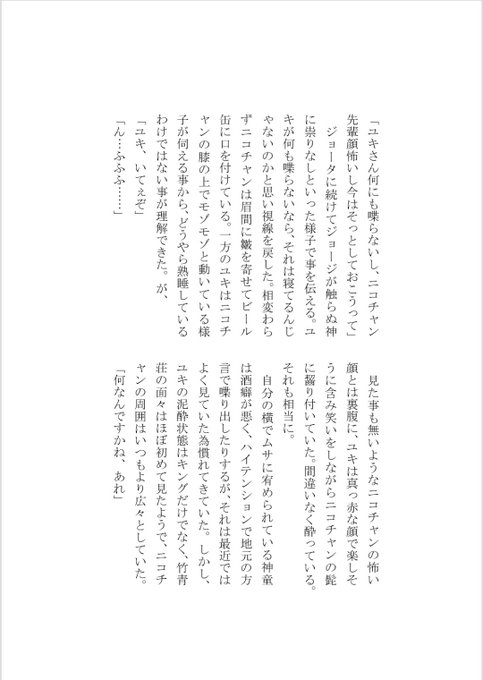 「ユキさん何にも喋らないし、ニコチャン
先輩顔怖いし今はそっとしておこうって」
　ジョータに続けてジョージが触らぬ神
に祟りなしといった様子で事を伝える。ユ
キが何も喋らないなら、それは寝てるんじ
ゃないのかと思い視線を戻した。相変わら
ずニコチャンは眉間に皺を寄せてビール
缶に口を付けている。一方のユキはニコチ
ャンの膝の上でモゾモゾと動いている様
子が伺える事から、どうやら熟睡している
わけではない事が理解できた。が、
「ユキ、いてぇぞ」
「ん…ふふふ……」
　見た事も無いようなニコチャンの怖い
顔とは裏腹に、ユキは真っ赤な顔で楽しそ
うに含み笑いをしながらニコチャンの髭
に齧り付いていた。間違いなく酔っている。
それも相当に。
　自分の横でムサに宥められている神童
は酒癖が悪く、ハイテンションで地元の方
言で喋り出したりするが、それは最近では
よく見ていた為慣れてきていた。しかし、
ユキの泥酔状態はキングだけでなく、竹青
荘の面々はほぼ初めて見たようで、ニコチ
ャンの周囲はいつもより広々としていた。
「何なんですかね、あれ」